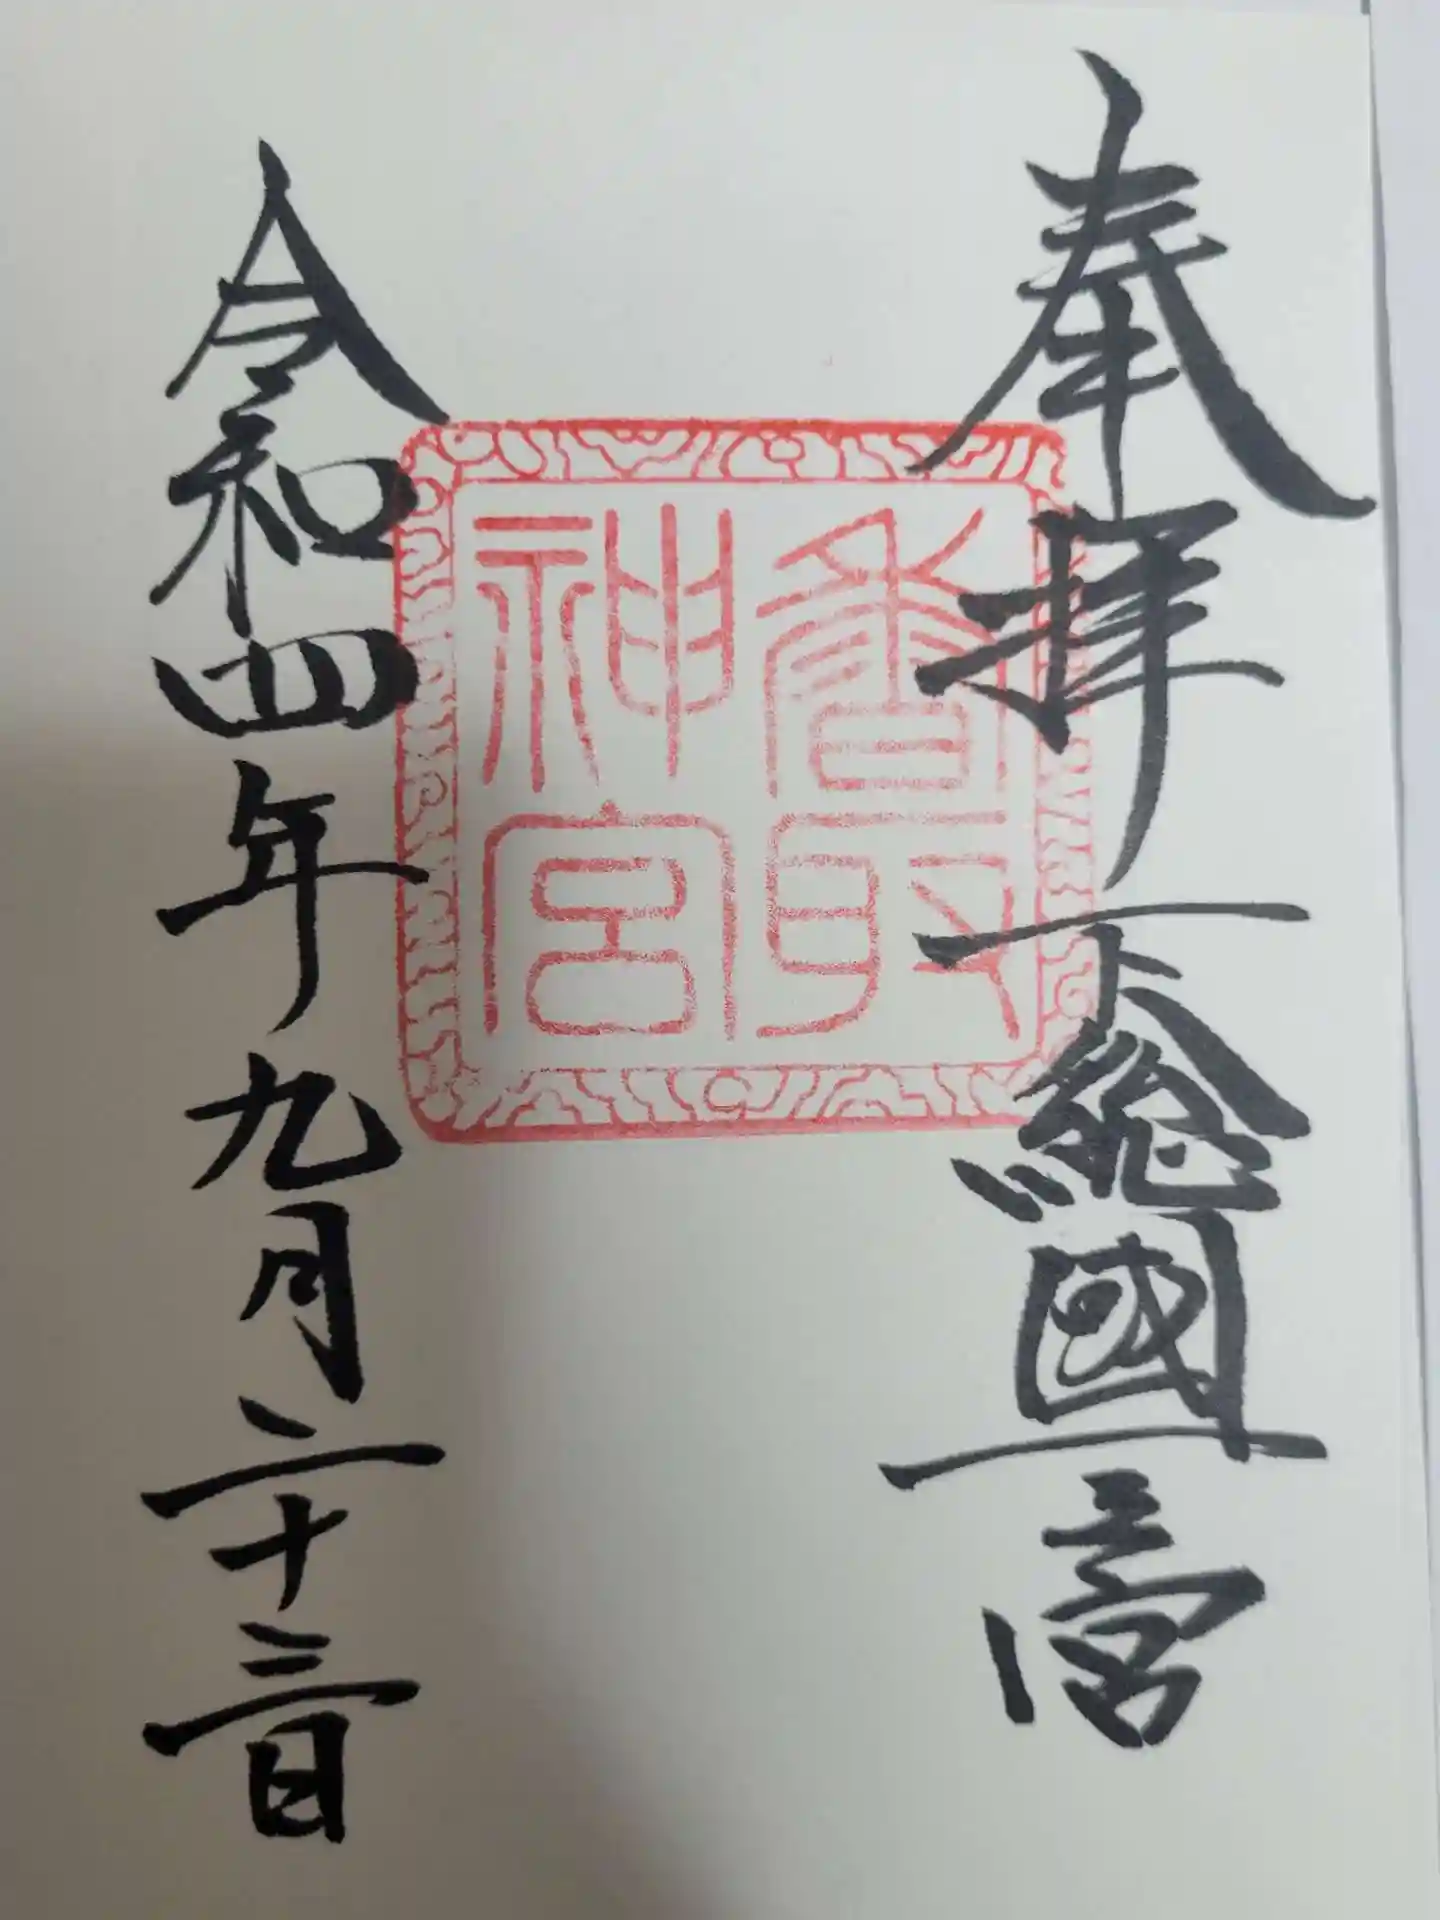 奉拝
下総國一宮
香取
神宮
令和四年九月二十三日